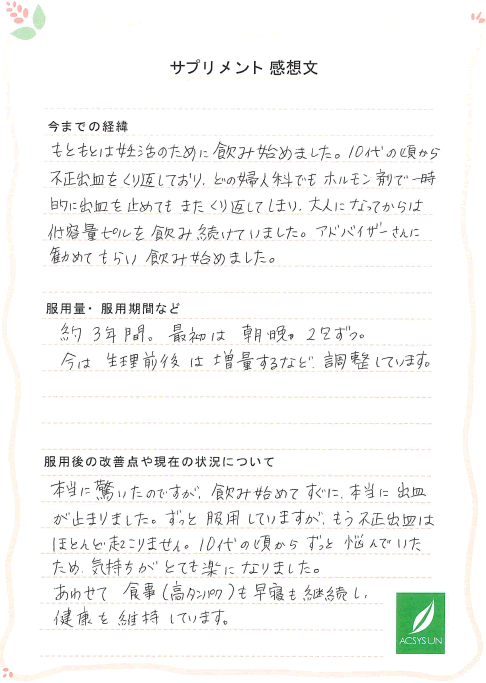 サプリメント 感想文
今までの経緯
もともとは妊活のために飲み始めました。10代の頃から
不正出血をくり返しており、どの婦人科でもホルモン剤で一時
的に出血を止めてもまたくり返してしまい、大人になってからは
低容量ピルを飲み続けていました。アドバイザーさんに
勧めてもらい飲み始めました。
服用量・服用期間など
約3年間。最初は朝晩 2包ずつ。
今は生理前後は増量するなど、調整しています。
服用後の改善点や現在の状況について
本当に驚いたのですが、飲み始めてすぐに、本当に出血
が止まりました。ずっと服用していますが、もう不正出血は
ほとんど起こりません。10代の頃からずっと悩んでいた
ため、気持ちがとても楽になりました。
あわせて食事(高タンパク)も早寝も継続し、
健康を維持しています。
ACSYSUN